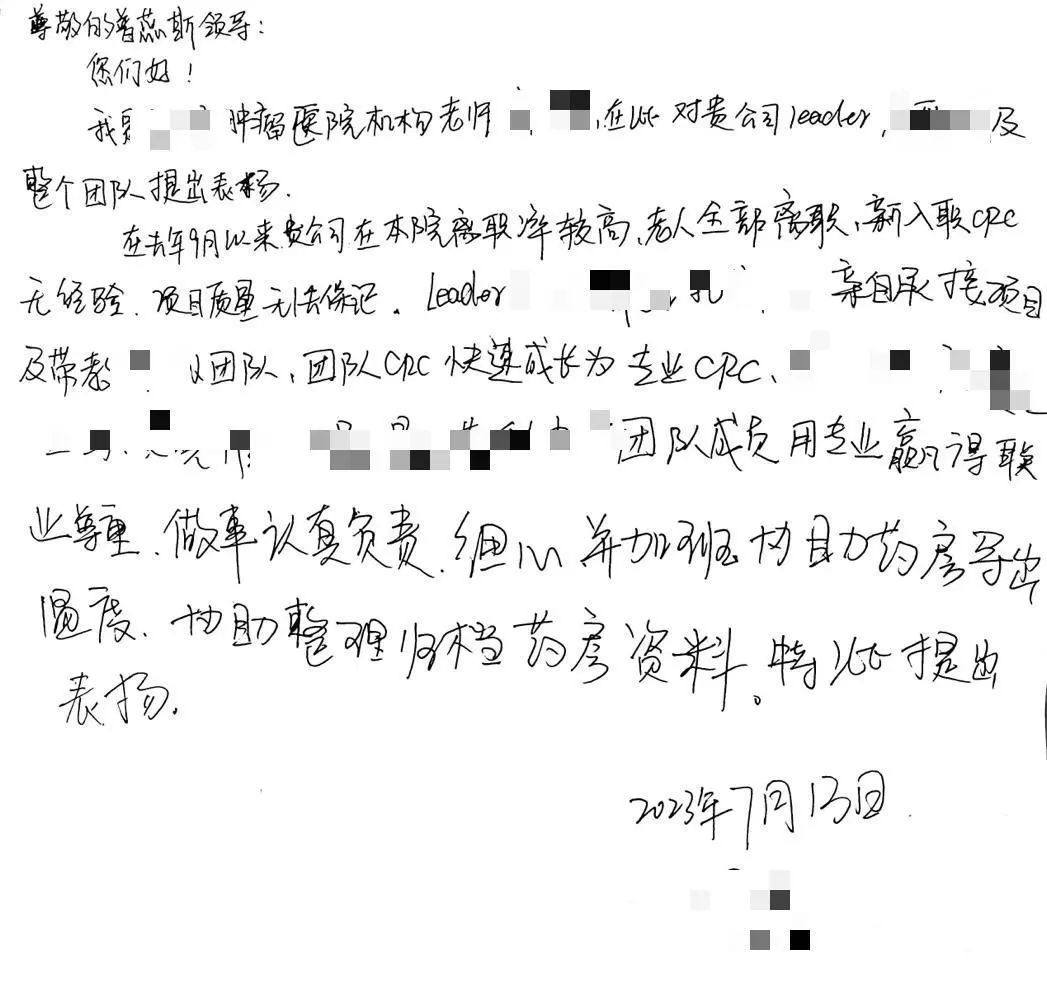 尊敬的普蕊斯领导：
您们好！
我是 肿瘤医院机构老师 ,在此对贵公司leader, 及
整个团队提出表扬.
在去年9月以来贵公司在本院离职率较高、老人全部离职、新入职CRC
无经验、项目质量无法保证. Leader 亲自承接项目
及带教 团队、团队CRC 快速成长为专业CRC、
团队成员用专业赢得职
业尊重、做事认真负责、细心并加班协助药房导出
温度、协助整理归档药房资料。特此提出
表扬.
2023年7月13日